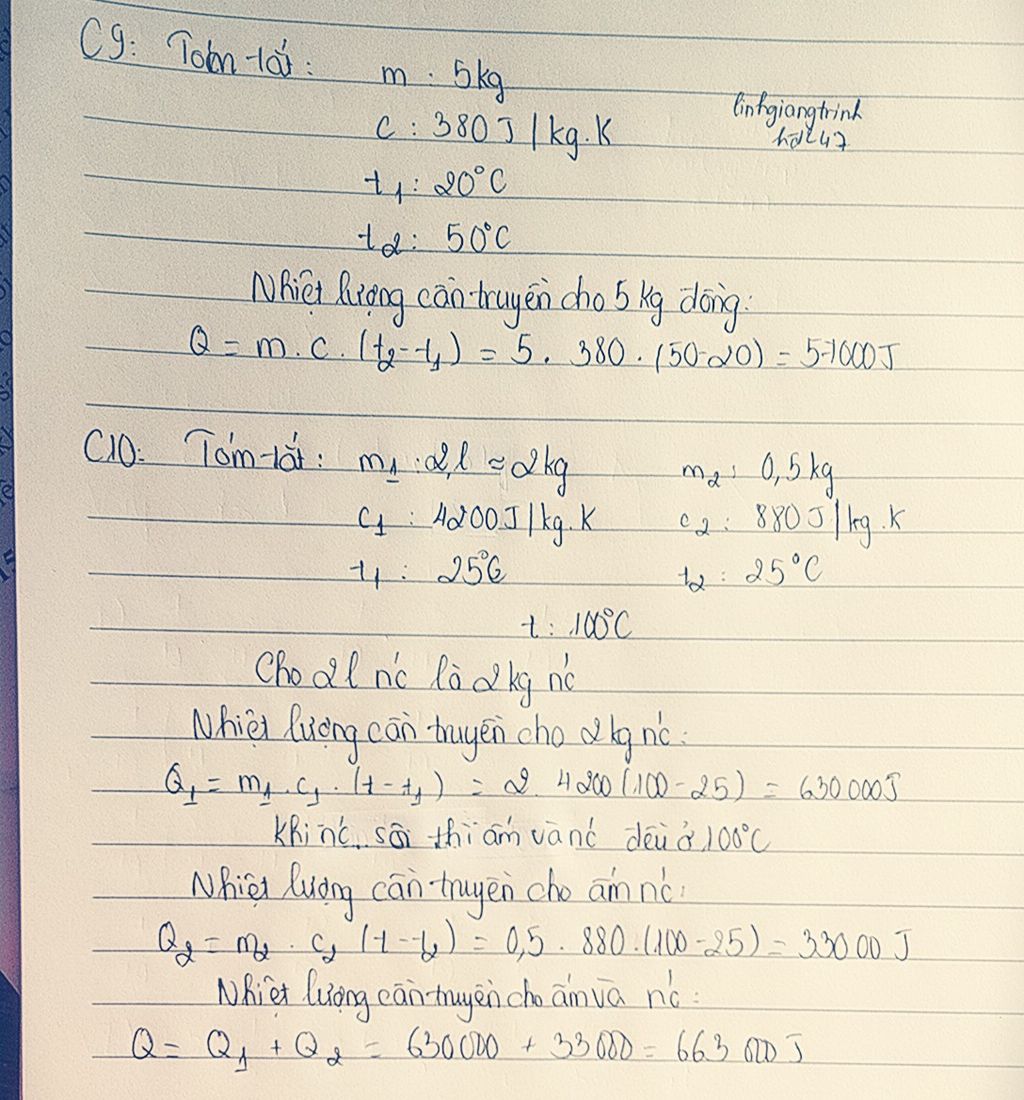 C9: Tóm tắt: m : 5kg
linhgiangtrinh
c : 380J/kg.K
t₁ : 20°C
t₂ : 50°C
Nhiệt lượng cần truyền cho 5 kg đồng:
Q = m.c.(t₂-t₁) = 5. 380.(50-20) = 57000J
C10: Tóm tắt: m₁ : 2l ≈ 2kg m₂ : 0,5kg
c₁ : 4200J/kg.K c₂ : 880J/kg.K
t₁ : 25°C t₂ : 25°C
t : 100°C
Cho 2l nć là 2kg nć
Nhiệt lượng cần truyền cho 2kg nć:
Q₁ = m₁.c₁.(t-t₁) = 2. 4200(100-25) = 630000J
Khi nć sôi thì ấm và nć đều ở 100°C
Nhiệt lượng cần truyền cho ấm nć:
Q₂ = m₂ . c₂ (t-t₂) = 0,5. 880.(100-25) = 33000J
Nhiệt lượng cần truyền cho ấm và nć:
Q = Q₁ + Q₂ = 630000 + 33000 = 663000J